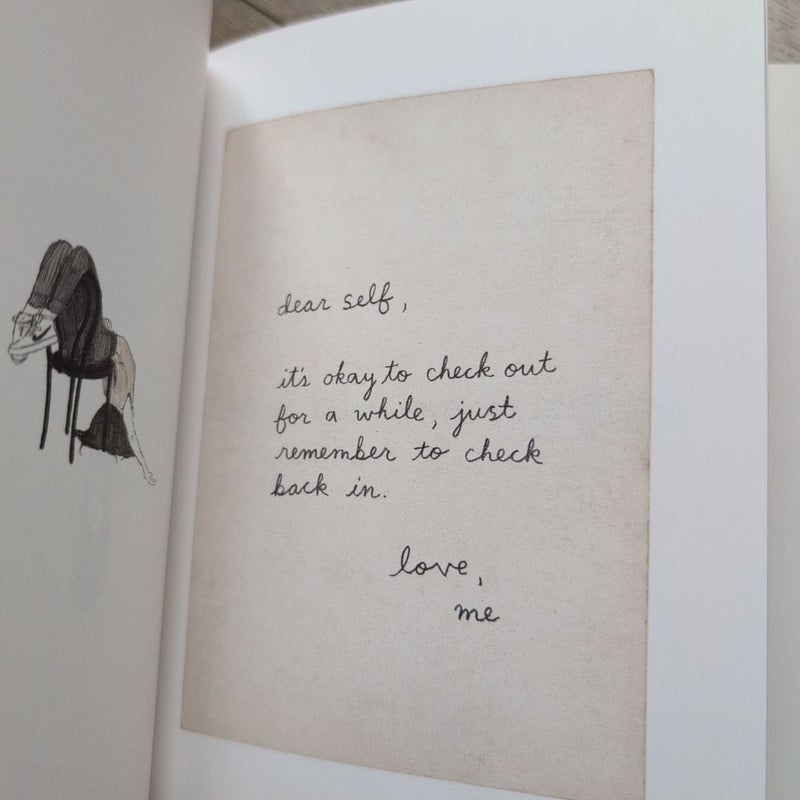 dear self,
it's okay to check out
for a while, just
remember to check
back in.
love,
me